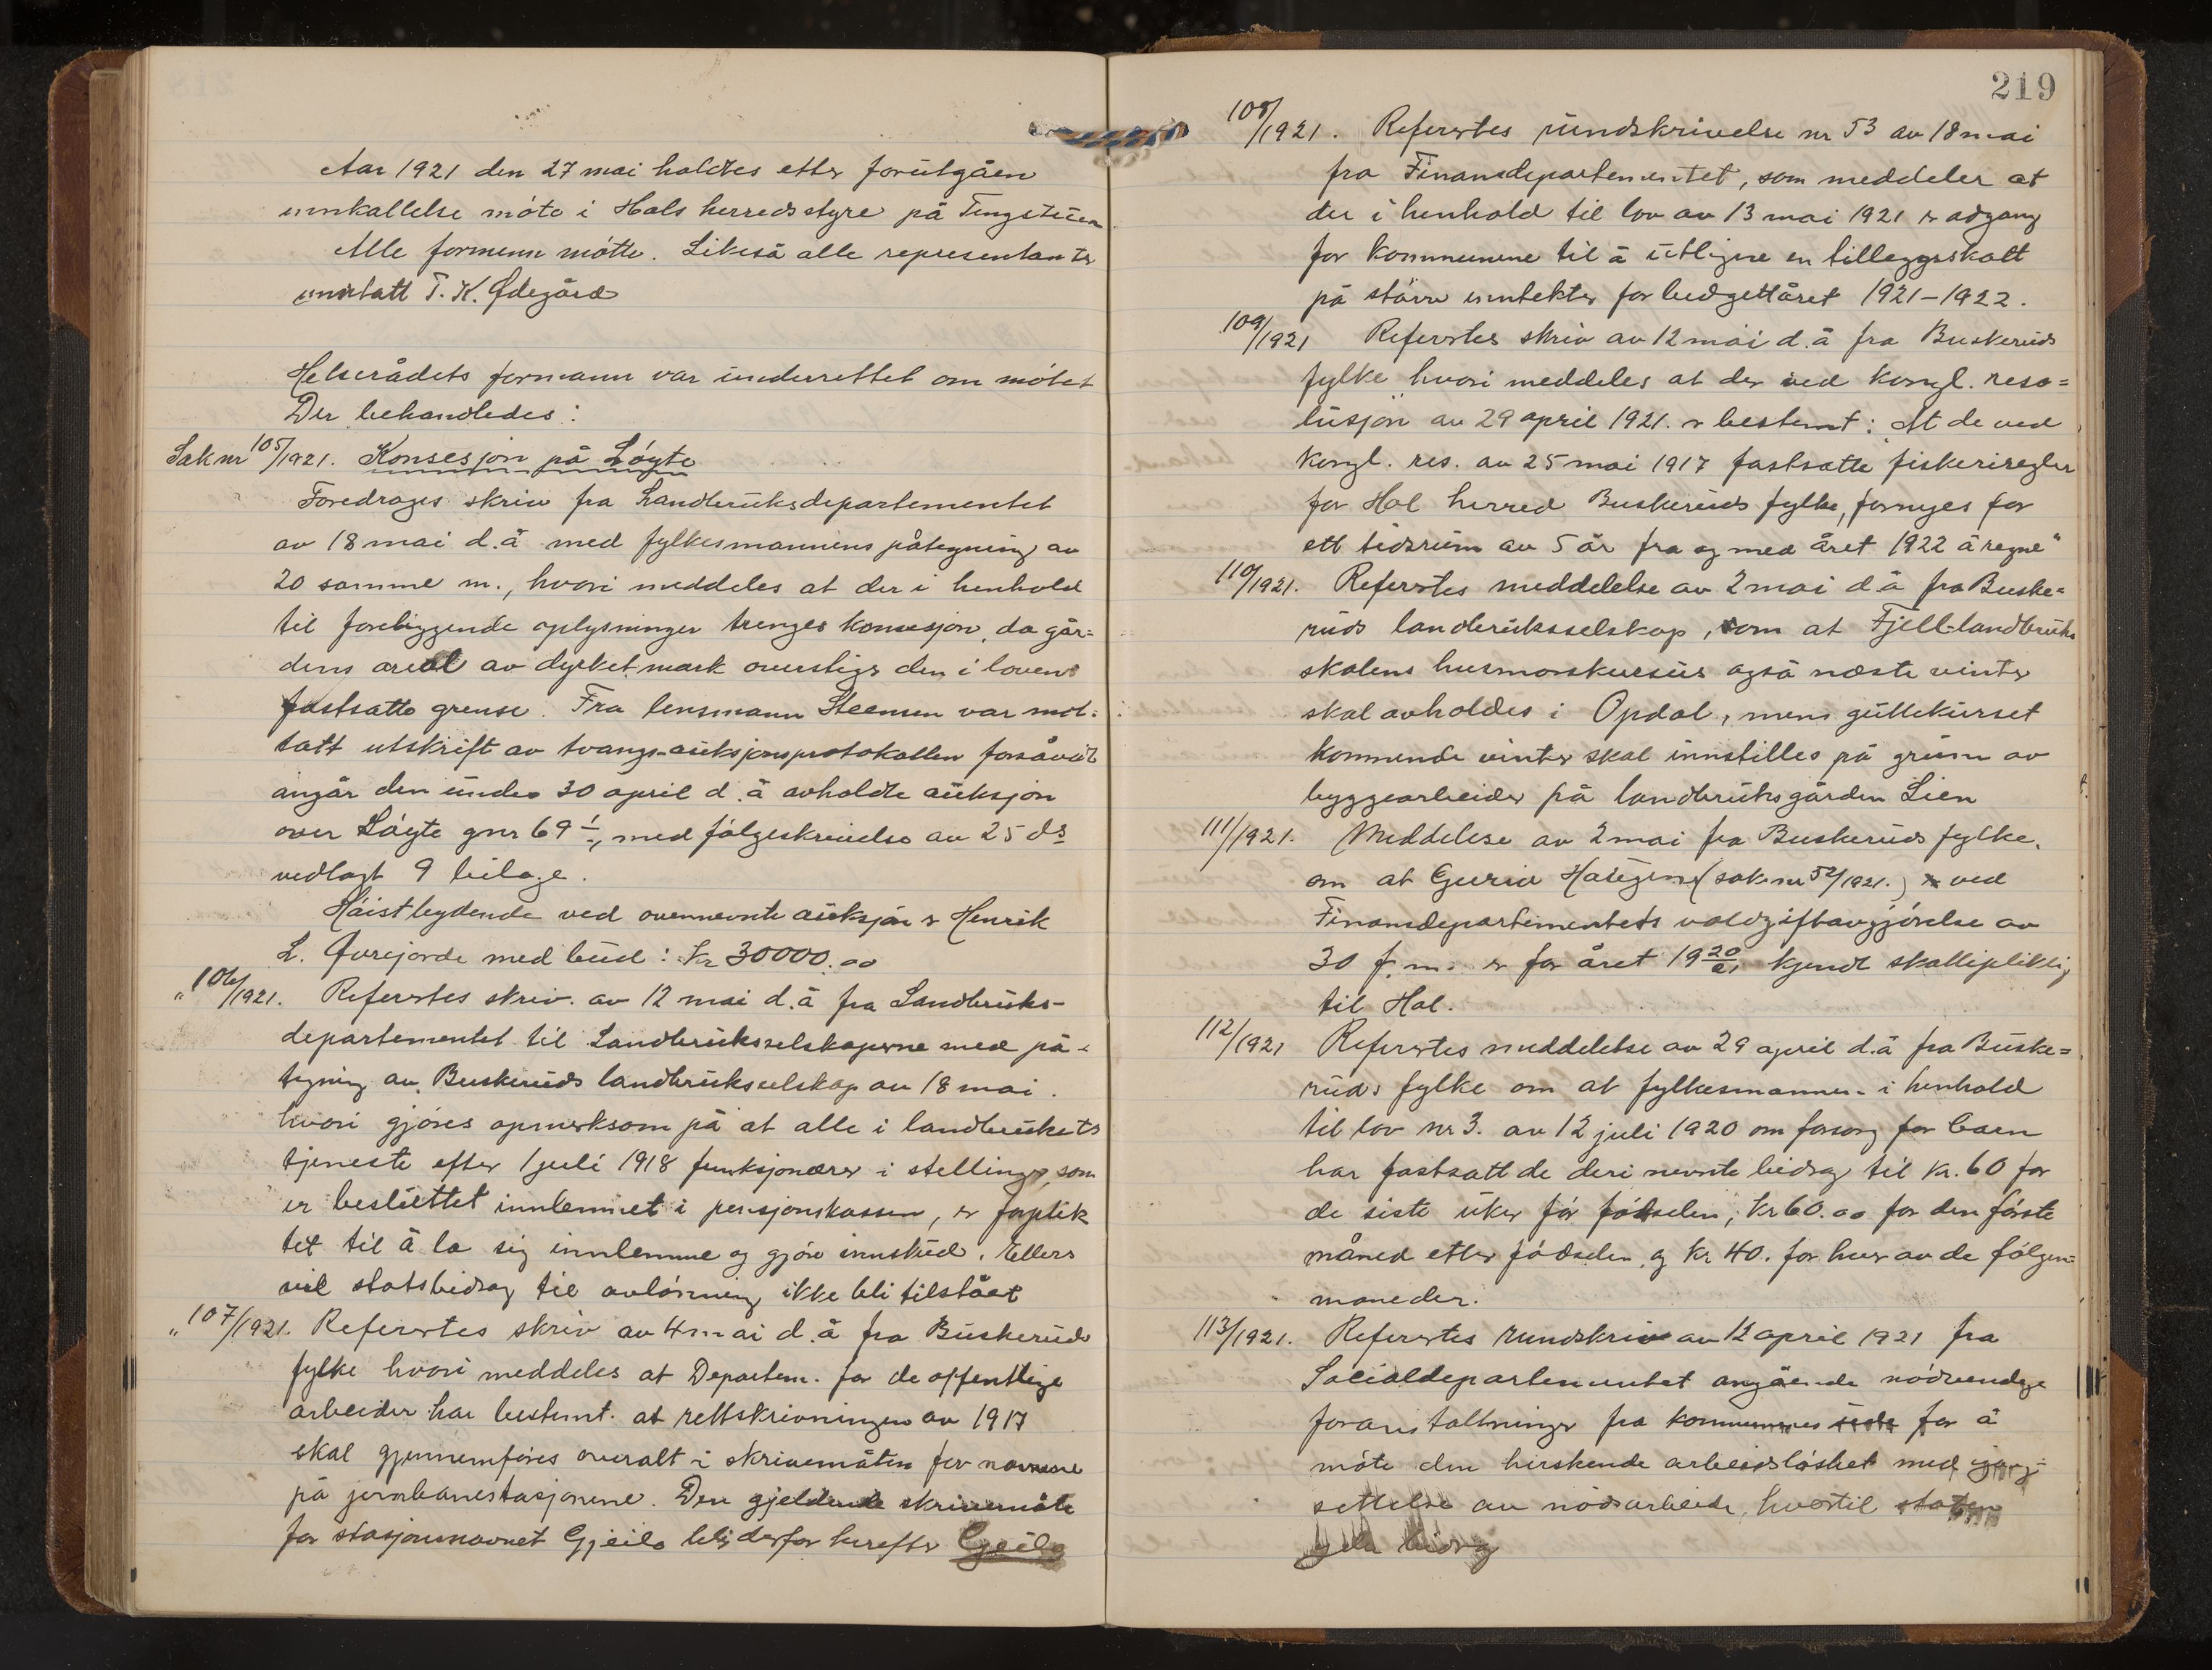 Aar 1921 den 27 mai holdtes etter forutgåen
innkallelse møte i Hols herredsstyre på Tingstuen
Alle formenn møtte. Likeså alle representanter
unntatt T. K. Ødegård
Helserådets formann var underrettet om møtet
Der behandledes:
Sak nr 105/1921. Konsesjon på Løyte
Foredroges skriv fra Landbruksdepartementet
av 18 mai d.å med fylkesmannens påtegning av
20 samme m., hvori meddeles at der i henhold
til foreliggende oplysninger trenges konsesjon, da går=
dens areal av dyrket mark overstiger den i loven
fastsatte grense. Fra lensmann Steensen var mot-
tatt utskrift av tvangs-auksjonsprotokollen forsåvidt
angår den under 30 april d.å avholdte auksjon
over Løyte gnr 69/1, med følgeskrivelse av 25 ds
vedlagt 9 bilage.
Høistbydende ved ovennevnte auksjon er Henrik
L. Qvrejorde med bud: kr 30000.00
" 106/1921. Refertes skriv. av 12 mai d.å fra Landbruks-
departementet til Landbruksselskaperne med på-
tegning av Buskeruds landbruksselskap av 18 mai.
hvori gjøres opmerksom på at alle i landbrukets
tjeneste efter 1 juli 1918 funksjonærer i stillinger, som
er besluttet innlemmet i pensjonskassen, er forplik
tet til å la sig innlemme og gjøre innskud. Ellers
vil statsbidrag til avlønning ikke bli tilstået
" 107/1921. Refertes skriv av 4 mai d.å fra Buskeruds
fylke hvori meddeles at Departem. for de offentlige
arbeider har bestemt at rettskrivningen av 1917
skal gjennemføres overalt i skrivemåten for navnene
på jernbanestasjonene. Den gjeldende skrivemåte
for stasjonsnavnet Gjeilo blir derfor herefter Geilo
219
108/1921. Refertes rundskrivelse nr 53 av 18 mai
fra Finansdepartementet, som meddeler at
der i henhold til lov av 13 mai 1921 er adgang
for kommunene til å utligne en tilleggsskatt
på større inntekter for budgettåret 1921-1922.
109/1921 Refertes skriv av 12 mai d.å fra Buskeruds
fylke hvori meddeles at der ved kongl. reso=
lusjon av 29 april 1921. er bestemt: "At de ved
kongl. res. av 25 mai 1917 fastsatte fiskeriregler
for Hol herred Buskeruds fylke, fornyes for
ett tidsrum av 5 år fra og med året 1922 å regne"
110/1921. Refertes meddelelse av 2 mai d.å fra Buske=
ruds landbruksselskap, om at Fjell-landbruks
skolens husmorskursus også næste vinter
skal avholdes i Opdal, mens guttekurset
kommende vinter skal innstilles på grunn av
byggearbeider på landbruksgården Lien
111/1921. Meddelese av 2 mai fra Buskeruds fylke,
om at Guriv Haugen (sak nr 52/1921.) er ved
Finansdepartementets voldgiftavgjørelse av
30 f.m. er for året 1920/21 kjendt skattepliktig
til Hol.
112/1921 Refertes meddelelse av 29 april d.å fra Buske=
ruds fylke om at fylkesmannen i henhold
til lov nr 3. av 12 juli 1920 om forsorg for barn
har fastsatt de deri nevnte bidrag til kr. 60 for
de siste uker før fødselen, kr 60.00 for den første
måned etter fødselen og kr 40. for hver av de følgen=
maneder.
113/1921. Refertes rundskriv av 12 april 1921 fra
Socialdepartementet angående nødvendige
foranstaltninger fra kommunenes side for å
møte den herskende arbeidsløshet med igang-
settelse av nødsarbeide, hvortil staten
yder bidrag